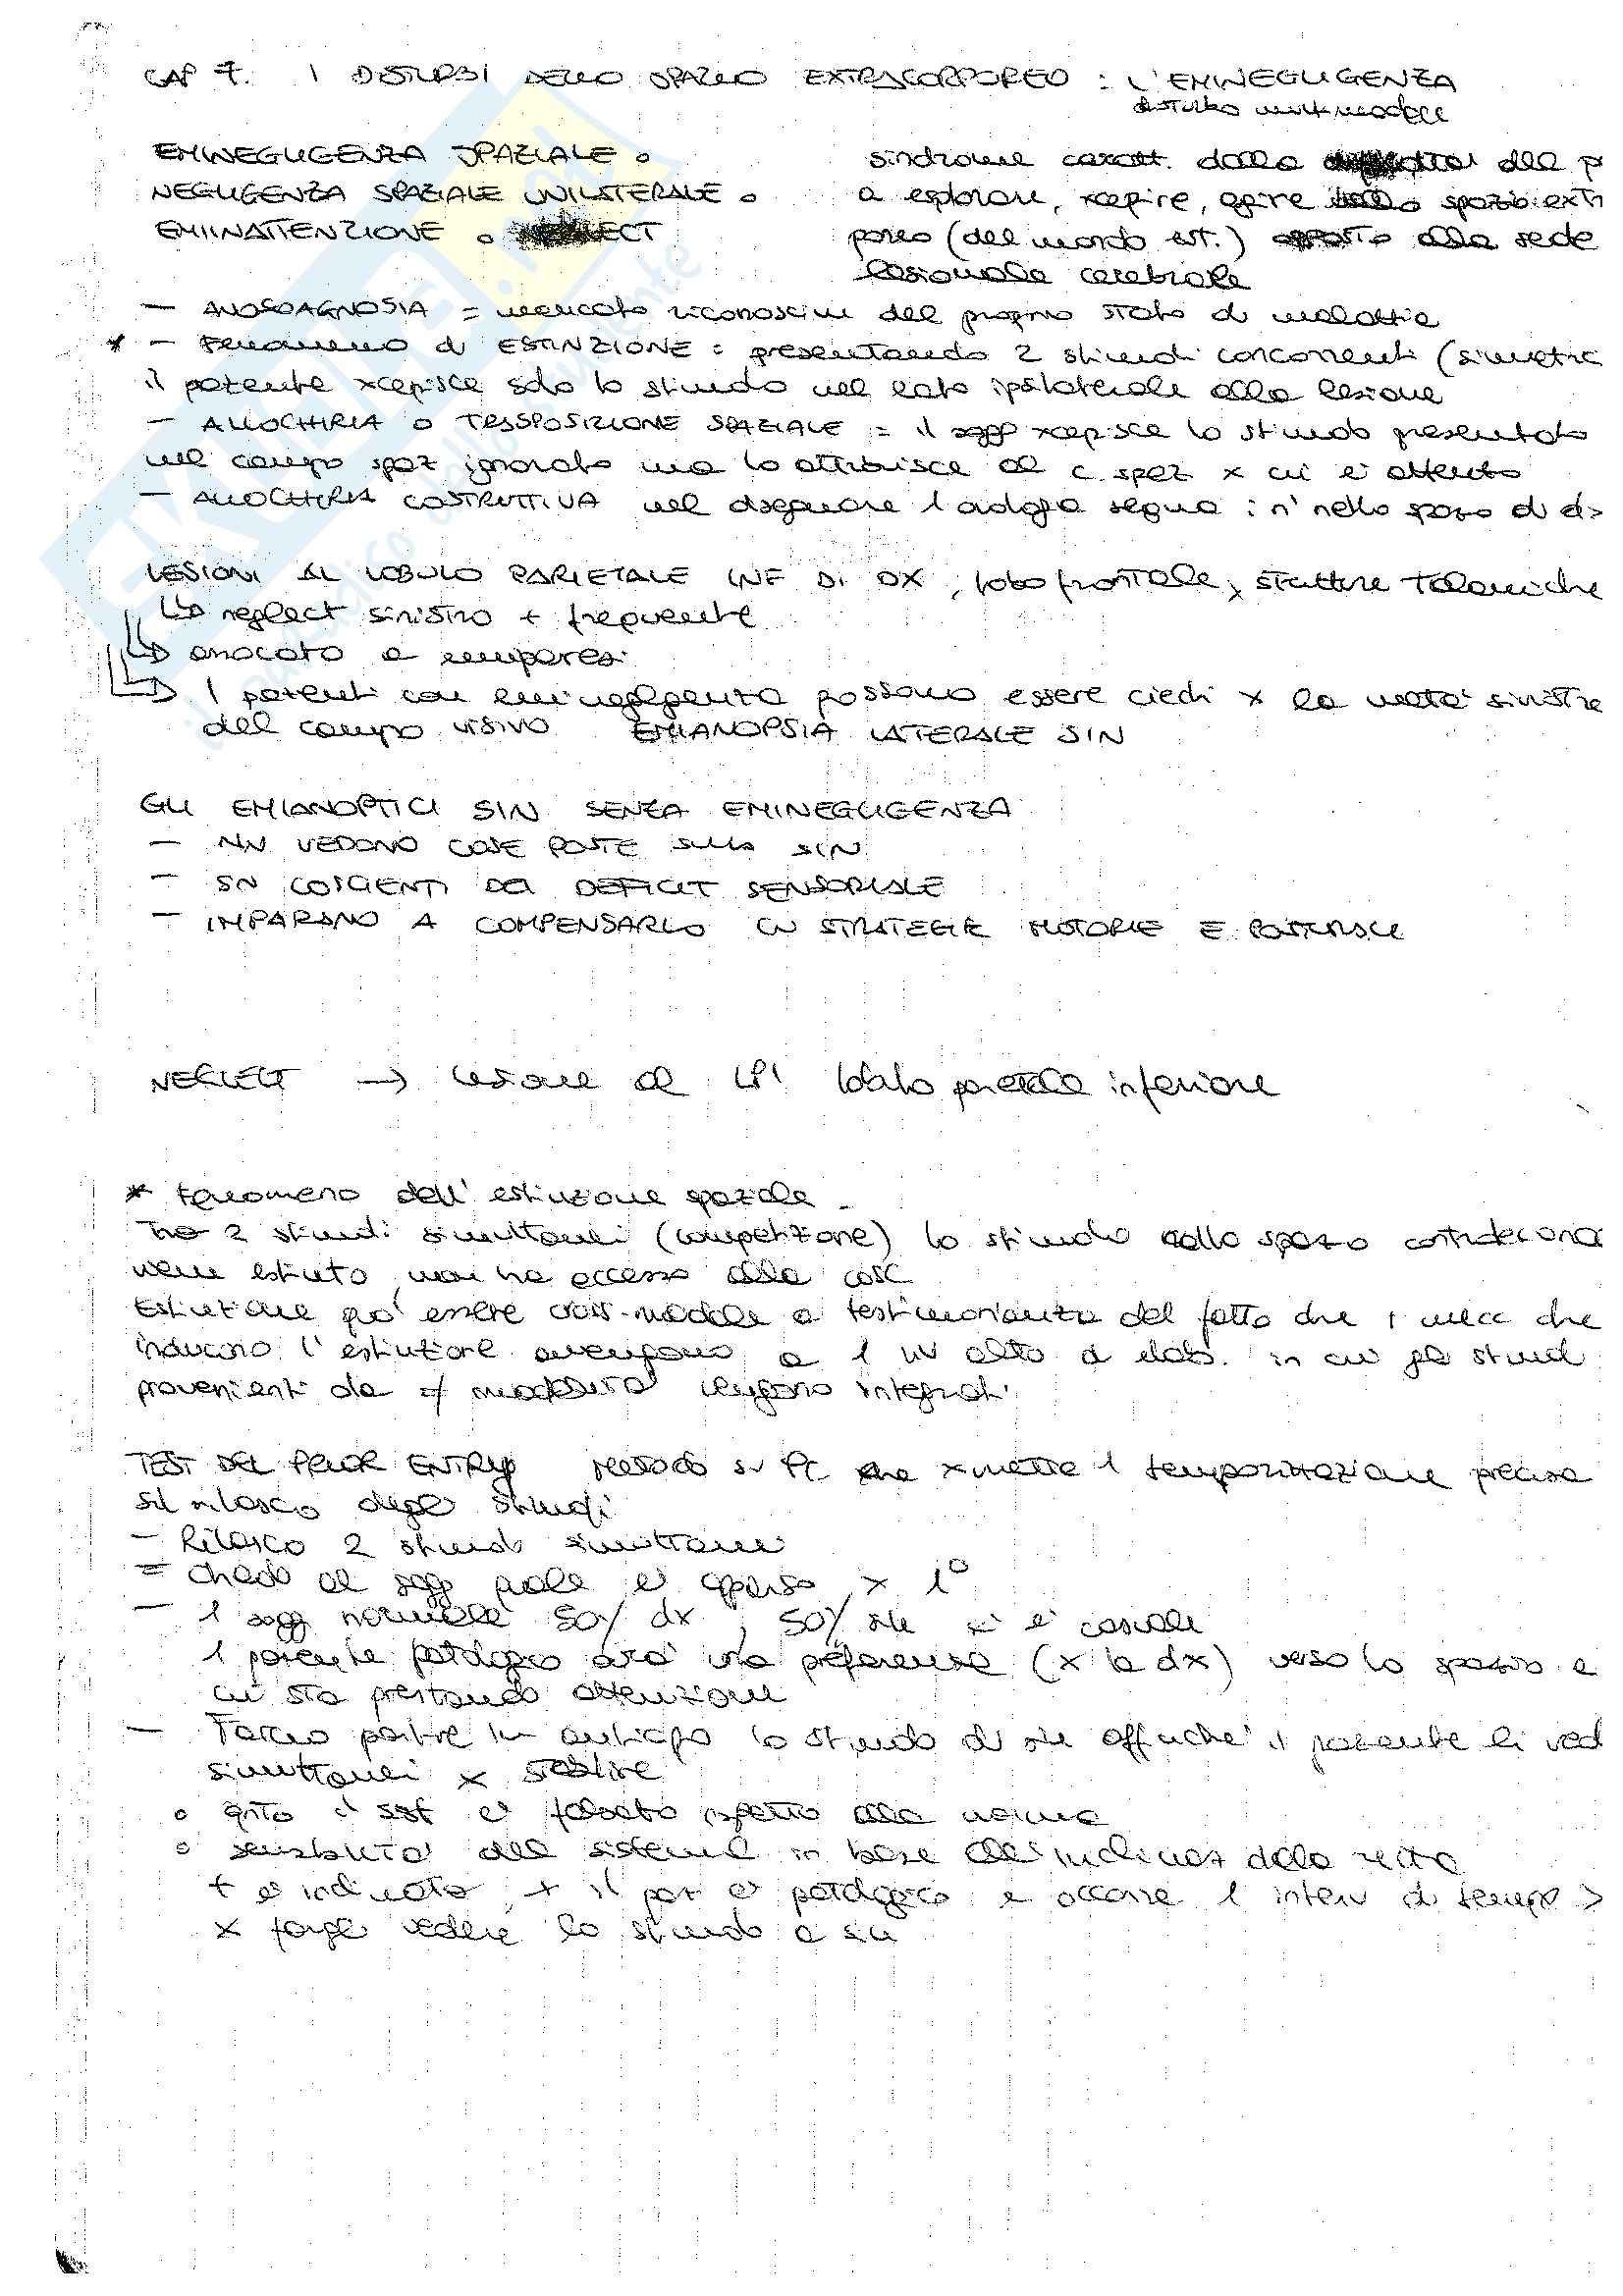 CAP 7. I DISTURBI DELLO SPAZIO EXTRACORPOREO : L'EMINEGLIGENZA
disturbo multimodale
EMINEGLIGENZA SPAZIALE o
NEGLIGENZA SPAZIALE UNILATERALE o
EMIINATTENZIONE o NEGLECT
sindrome caratt. dalla del p
a esplorare, xcepire, agire spazio ext
poreo (del mondo est.) opposto alla sede
lesionale cerebrale
— ANOSOAGNOSIA = mancato riconoscim del proprio stato di malattia
* — Fenomeno di ESTINZIONE : presentando 2 stimoli concorrenti (simetric
il paziente xcepisce solo lo stimolo nel lato ipsilaterale alla lesione
— ALLOCHIRIA O TRASPOSIZIONE SPAZIALE = il sogg xcepisce lo stimolo presentato
nel campo spaz ignorato ma lo attribisce al c. spaz x cui è attento
— ALLOCHIRIA COSTRUTTIVA nel disegnare 1 orologio segna i n' nello spazio di d>
LESIONI AL LOBULO PARIETALE INF DI DX, lobo frontale, strutture talamiche
↳ neglect sinistro + frequente
↳ a emiparesi
↳ I pazienti con emineglegenza possono essere ciechi x la metà sinistra
del campo visivo EMIANOPSIA LATERALE SIN
GLI EMIANOPTICI SIN SENZA EMINEGLIGENZA
— NN VEDONO COSE POSTE sulla SIN
— SN COSCIENTI DEL DEFICIT SENSORIALE
— IMPARANO A COMPENSARLO CN STRATEGIE MOTORIE E POSTURALI
NEGLECT → lesione al LPI lobulo parietale inferiore
* Fenomeno dell'estinzione spaziale
Tra 2 stimoli simultanei (competizione) lo stimolo nello spazio
viene estinto, non ha accesso alla cosc
Estinzione può essere cross-modale a testimonianza del fatto che i mecc che
inducono l'estinzione avvengono a 1 liv alto di elab. in cui gli stimoli
provenienti da ≠ modalità vengono integrati
TEST DEL PRIOR ENTRY metodo su PC che xmette 1 temporizzazione precisa
sul rilascio degli stimoli
— Rilascio 2 stimoli simultanei
= Chiedo al sogg quale è apparso x 1°
— 1 sogg normale 50% dx, 50% è casuale
1 paziente patologico avrà una preferenza (x la dx) verso lo spazio a
cui sta prestando attenzione
— Faccio partire in anticipo lo stimolo di affinché il paziente li ved
simultanei x stabilire
o qnto il è falsato rispetto alla norma
o sensibilità del sistema in base all'inclinaz della retta
+ è inclinata, + il paz è patologico e occorre 1 interv di tempo >
x fargli vedere lo stimolo a sin